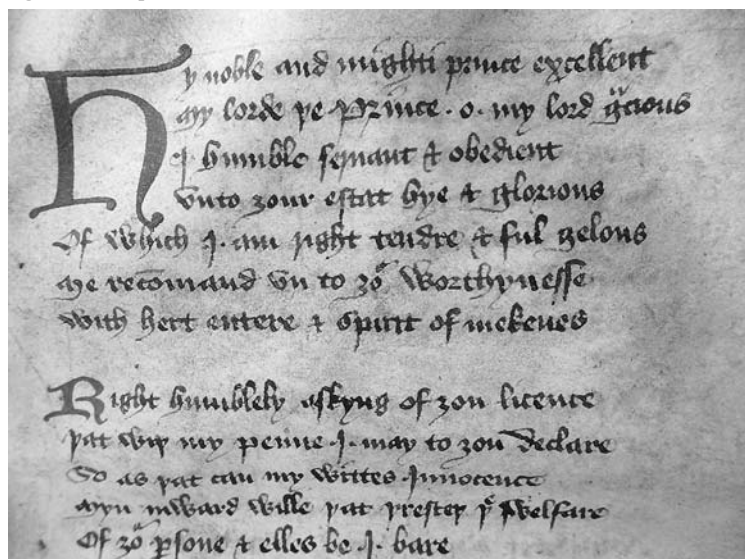 Hy noble and mighti prince excellent
My lorde þe Prince · o · my lord gᵃcious
I humble seruant & obedient
Vnto ȝour estat hye & glorious
Of which I · am right tendre & ful ȝelous
Me recōmand vn to ȝoʳ worthynesse
With hert entere & spirit of mekenes
Right humblely askyng of ȝou licence
Þat wiþ my penne · I · may to ȝou declare
So as þat can my wittes Innocence
Myn inward wille þat þresteþ þᵉ welfare
Of ȝoʳ ꝑsone & elles be · I · bare